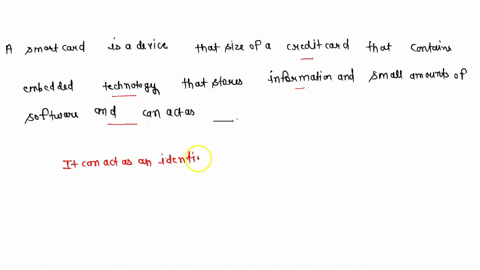 A smart card is a device that size of a credit card that contains
embedded technology that stores information and small amounts of
software and can act as ___.
It can act as an identi